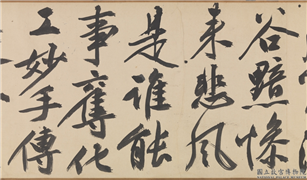 谷黯慘
來悲風
是誰能
事奪化
工妙手傳
國立故宮博物院